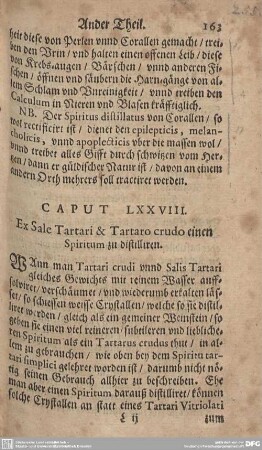 Ander Theil. 163
heit diese von Perlen vnnd Corallen gemacht / trei=
ben den Vrin / vnd halten einen offenen Leib / diese
von Krebs-augen / Bärschen / vnnd anderen Fi=
schen / öffnen vnd säubern die Harn-gänge von al=
lem Schlam vnd Vnreinigkeit / vnnd treiben den
Calculum in Nieren vnd Blasen kräfftiglich.
NB. Der Spiritus distillatus von Corallen / so
wol rectificirt ist / dienet den epilepticis, melan-
cholicis, vnnd apoplecticis vber die massen wol /
vnnd treibet alles Gifft durch schwitzen vom Her=
tzen / dann er güldischer Natur ist / davon an einem
andern Orth mehrers soll tractiret werden.
CAPUT LXXVIII.
Ex Sale Tartari & Tartaro crudo einen
Spiritum zu distilliren.
WAnn man Tartari crudi vnnd Salis Tartari
gleiches Gewichts mit reinem Wasser auff=
solviret / verschäumet / vnd wiederumb erkalten läs=
set / so schiessen weisse Crystallen / welche so sie distil=
liret werden / gleich als ein gemeiner Weinstein / so
gehen sie einen viel reineren / subtileren vnd liebliche=
ren Spiritum als ein Tartarus crudus thut / in al=
lem zu gebrauchen / wie oben bey dem Spiritu tar-
tari simplici gelehret worden ist / darumb nicht nö=
tig seinen Gebrauch allhier zu beschreiben. Ehe
man aber einen Spiritum darauß distilliret / können
solche Crystallen an statt eines Tartari Vitriolati
L ij zum